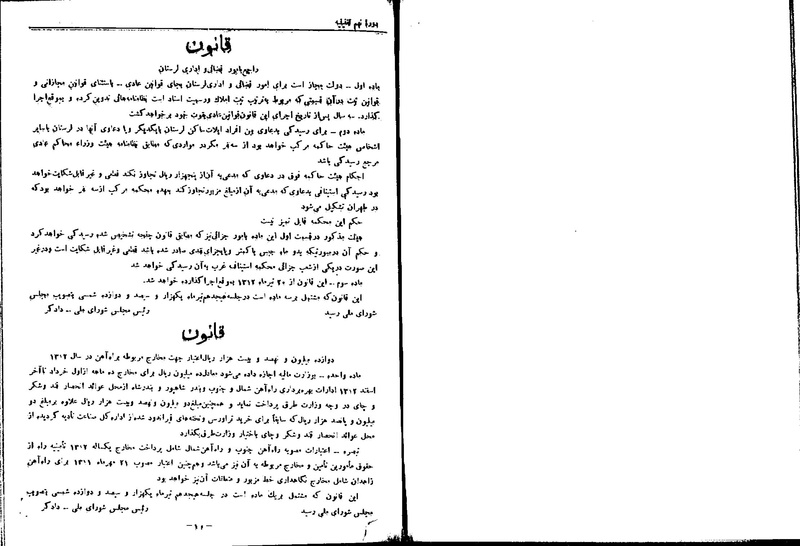 دوره نهم تقنینیه
قانون
راجع بامور قضائی و اداری لرستان
ماده اول ـ دولت مجاز است برای امور قضائی و اداری لرستان بجای قوانین عادی ـ باستثنای قوانین مجازاتی و
قوانین ثبت در آن قسمتی که مربوط به ترتیب ثبت املاک و رسمیت اسناد است نظامنامه‌هائی تدوین کرده و بموقع اجرا
گذارد. سه سال پس از تاریخ اجرای این قانون قوانین عادی بقوت خود برخواهد گشت
ماده دوم ـ برای رسیدگی بدعاوی بین افراد ایلات ساکن لرستان با یکدیگر و یا دعاوی آنها در لرستان با سایر
اشخاص هیئت حاکمه مرکب خواهد بود از سه نفر مگر در مواردی که مطابق نظامنامه هیئت وزراء محاکم عادی
مرجع رسیدگی باشد
احکام هیئت حاکمه فوق در دعاوی که مدعی‌به آن از پنجهزار ریال تجاوز نکند قطعی و غیر قابل شکایت خواهد
بود رسیدگی استینافی بدعاوی که مدعی‌به آن از مبلغ مزبور تجاوز کند بعهده محکمه مرکب از سه نفر خواهد بود که
در طهران تشکیل می‌شود
حکم این محکمه قابل تمیز نیست
هیئت مذکور در قسمت اول این ماده بامور جزائی نیز که مطابق قانون جنحه تشخیص شده رسیدگی خواهد کرد
و حکم آن در صورتیکه بدو ماه حبس یا کمتر و یا بجزای نقدی صادر شده باشد قطعی و غیر قابل شکایت است و در غیر
این صورت در یکی از شعب جزائی محکمه استیناف غرب به آن رسیدگی خواهد شد
ماده سوم ـ این قانون از ۲۰ تیرماه ۱۳۱۲ بموقع اجرا گذارده خواهد شد.
این قانون که مشتمل بر سه ماده است در جلسه هیجدهم تیرماه یکهزار و سیصد و دوازده شمسی بتصویب مجلس
شورای ملی رسید رئیس مجلس شورای ملی ـ دادگر
قانون
دوازده میلیون و نهصد و بیست هزار ریال اعتبار جهت مخارج مربوطه براه‌آهن در سال ۱۳۱۲
ماده واحده ـ بوزارت مالیه اجازه داده می‌شود معادل ده میلیون ریال برای مخارج ده ماهه از اول خرداد تا آخر
اسفند ۱۳۱۲ ادارات بهره‌برداری راه‌آهن شمال و جنوب و بندر شاهپور و بندرشاه از محل عوائد انحصار قند و شکر
و چای در وجه وزارت طرق پرداخت نماید و همچنین مبلغ دو میلیون و نهصد و بیست هزار ریال علاوه بر مبلغ دو
میلیون و پانصد هزار ریال که سابقاً برای خرید تراورس و تخته‌های قیراندود شده از اداره کل صناعت تأدیه گردیده از
محل عوائد انحصار قند و شکر و چای باختیار وزارت طرق بگذارد
تبصره ـ اعتبارات مصوبه راه‌آهن جنوب و راه‌آهن شمال شامل پرداخت مخارج یکساله ۱۳۱۲ تأمینیه راه از
حقوق مأمورین تأمین و مخارج مربوطه به آن نیز می‌باشد و همچنین اعتبار مصوب ۲۱ مهرماه ۱۳۱۱ برای راه‌آهن
زاهدان شامل مخارج نگاهداری خط مزبور و متعلقات آن نیز خواهد بود
این قانون که مشتمل بر یک ماده است در جلسه هیجدهم تیرماه یکهزار و سیصد و دوازده شمسی بتصویب
مجلس شورای ملی رسید رئیس مجلس شورای ملی ـ دادگر
ـ۱۰ـ